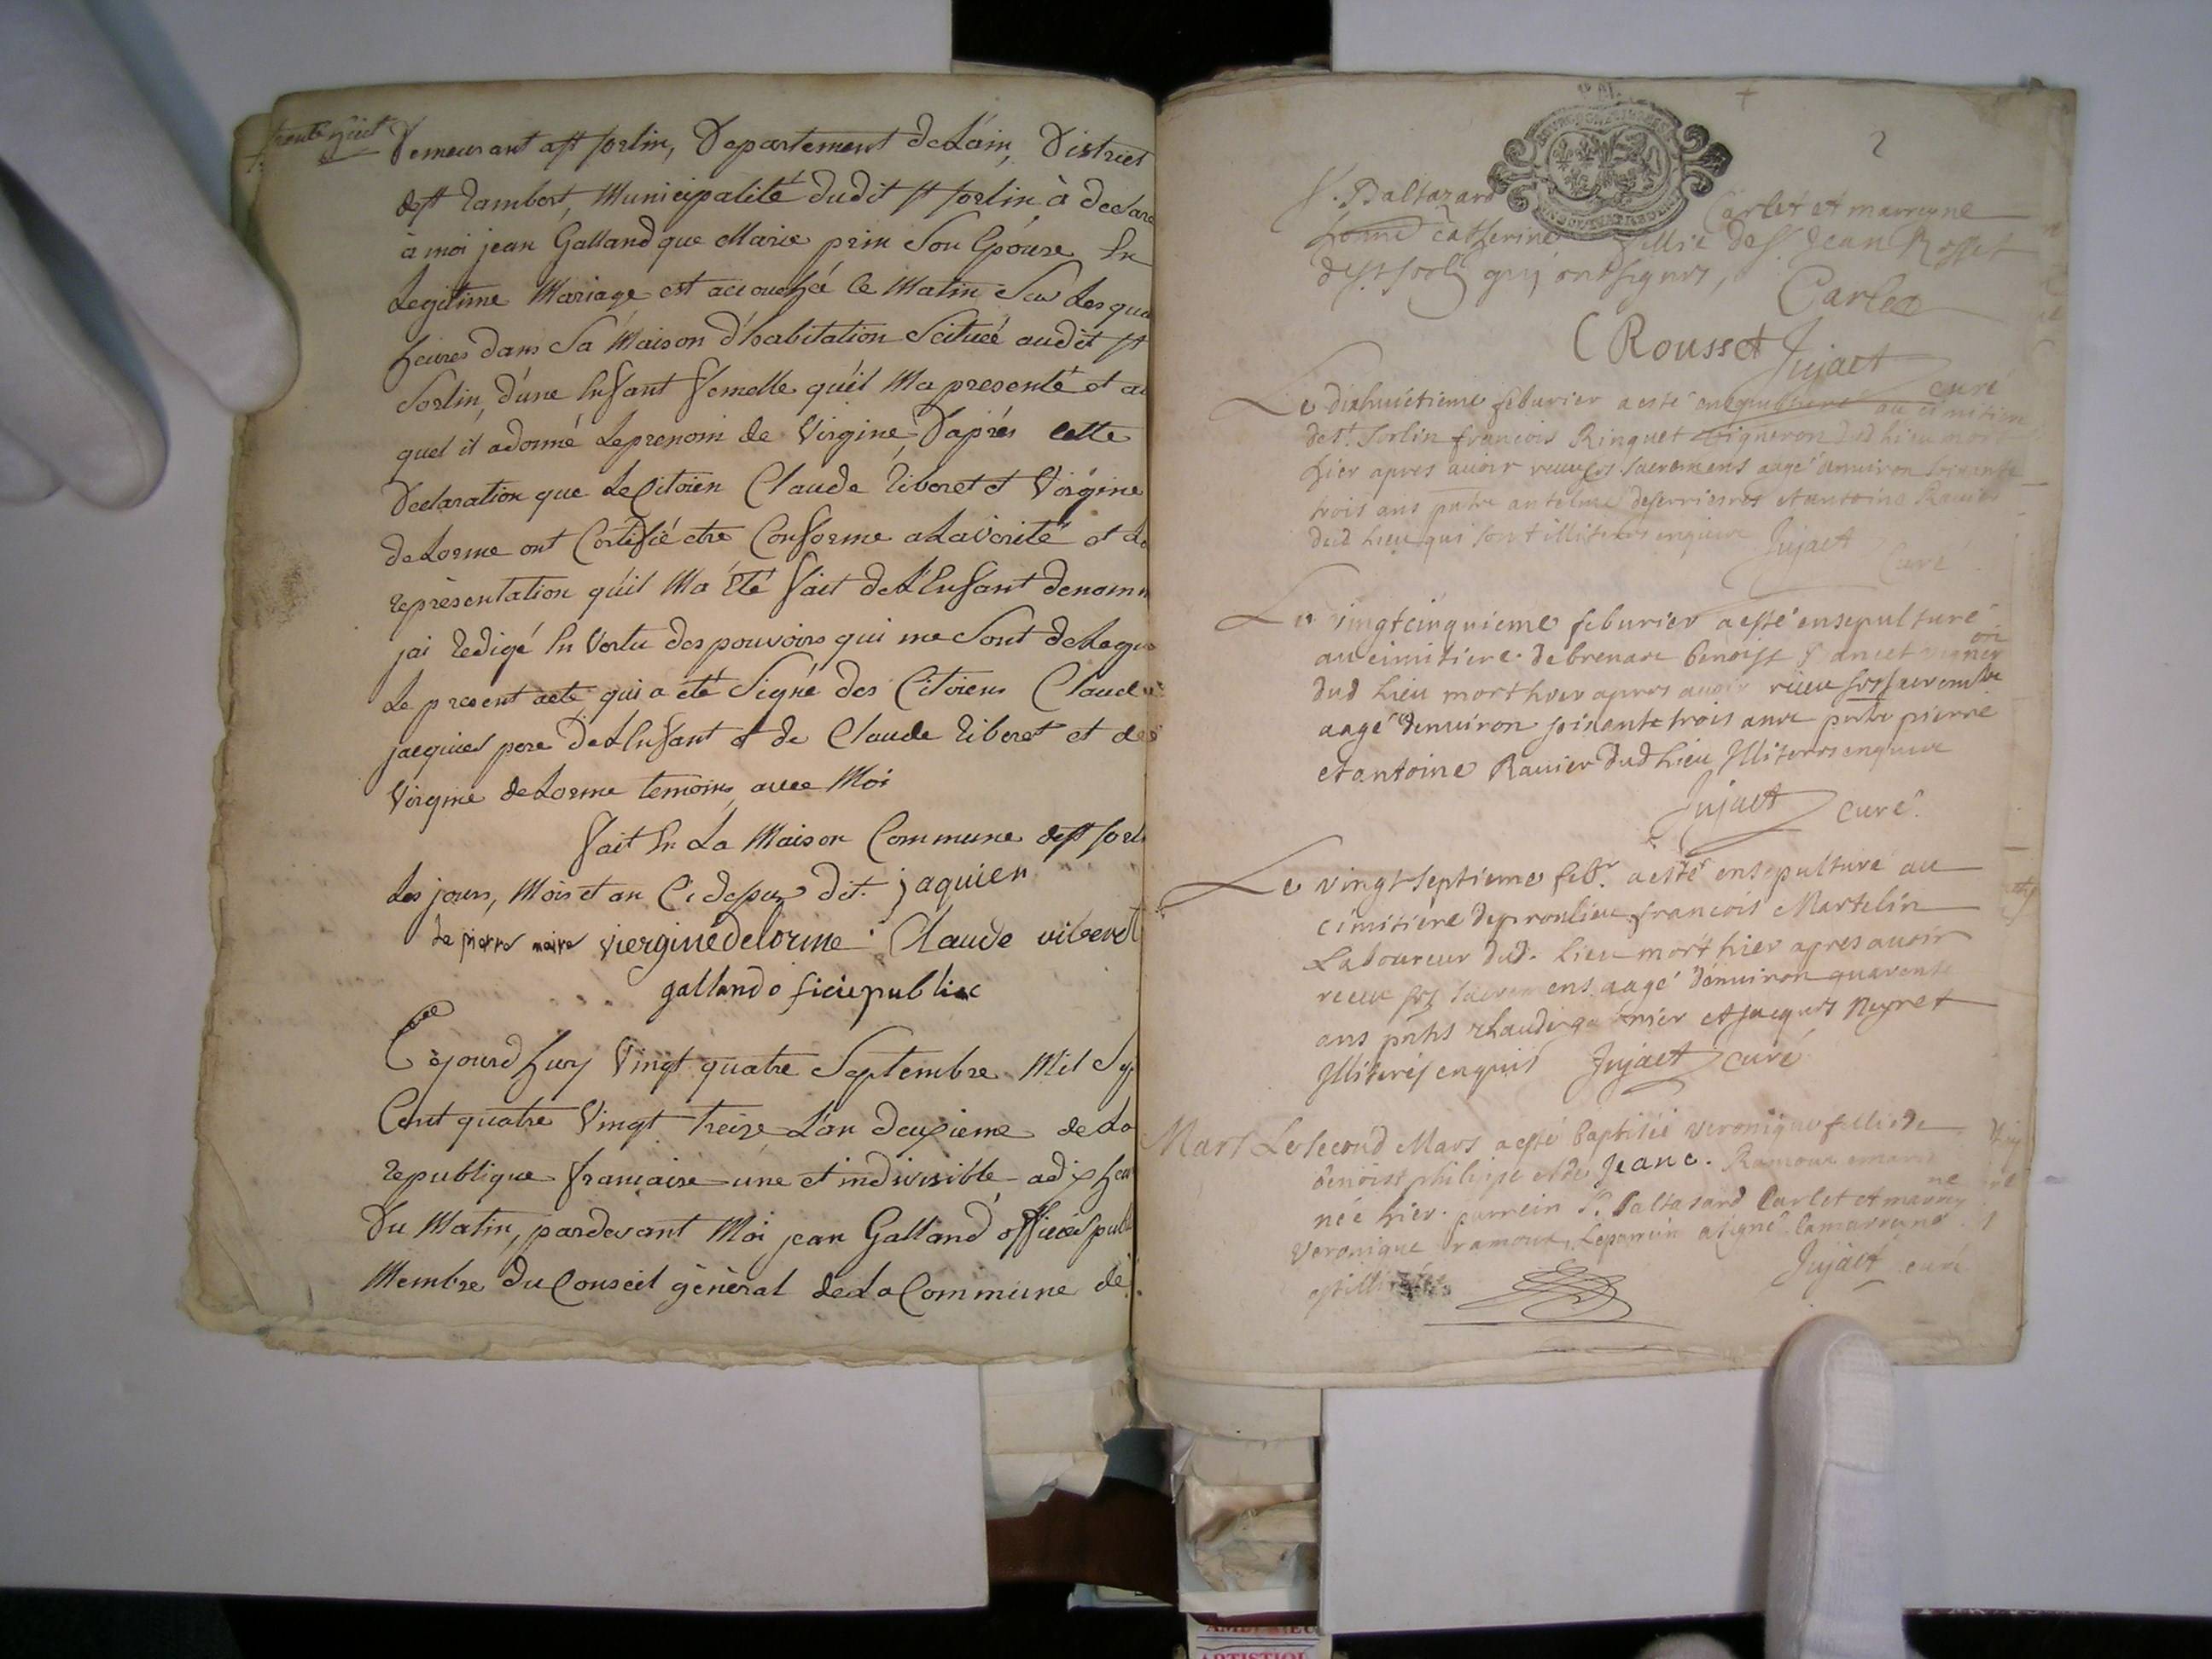 trente huit
Demeurant a st sorlin, Departement de Lain, District
de st Rambert, Municipalité dudit st sorlin à declaré
à moi jean Galland que Marie prin Son Epouse En
Legitime Mariage est accouchée ce Matin Sur Les qua
heures dans Sa Maison d'habitation Scituée audit st
Sorlin, d'une Enfant femelle quil Ma presenté et au
quel il a donné Le prenom de Virgine, D'aprés cette
Declaration que Le Citoien Claude Viberet et Virgine
deLorme ont Certifié etre Conforme a La verité et La
représentation qu'il Ma Eté fait de L'Enfant denomm
jai Redigé En Vertu des pouvoirs qui me Sont delegu
Le present acte qui a été Signé des Citoiens Claude
jacquier pere de L'Enfant et de Claude Viberet et de
Virgine deLorme temoins avec Moi
fait En La Maison Commune de st sorl
Les jours, Mois et an Ci dessus dit. jaquier
de pierre maire viergine delorme Claude viberet
galland oficie publiec
Cejourdhuy Vingt quatre Septembre Mil Sep
Cent quatre Vingt treize L'an deuxieme de La
republique francaise une et indivisible a dix heu
Du Matin, pardevant Moi jean Galland officier publ
Membre du Conseil gènèral de La Commune de
2
Sr. Baltazard Carlet et marreyne
catherine fillie de Sr. Jean Rosset
de st sorlin quj ont signes,
Carlet
Rousset Jujact curé
Le dixhuictieme feburier a esté ensepulturé au cimitiere
de st. Sorlin francois Ringuet vigneron dud lieu mort
hier apres auoir receu ses sacremens aagé d'enuiron soixante
trois ans pntz antelme deserrieres et antoine Rauier
dud lieu qui sont illiterés enquis Jujact
Curé
Le vingtcinquieme feburier a esté ensepulturé
au cimitiere de brenaz benoist vigneron
dud lieu mort hier apres auoir receu ses sacremens
aagé denuiron soixante trois ans pntz pierre
et antoine Rauier dud lieu Illiteres enquis
Jujact curé
Le vingt septieme febr. a esté ensepulturé au
cimitiere de proulieu francois Martelin
Laboureur dud. lieu mort hier apres auoir
receu ses sacremens aagé d'enuiron quarente
ans pnts Claude et Jacques Neyret
Illiterés enquis Jujact curé
Mars Le second Mars a esté baptisée veronique fillie de
benoist philippe et de Jeane. Ramoux
née hier. parrein Sr. Baltasard Carlet et marreyne
veronique ramoux, Le parrein a signé la marreyne
est illiterée Jujact curé